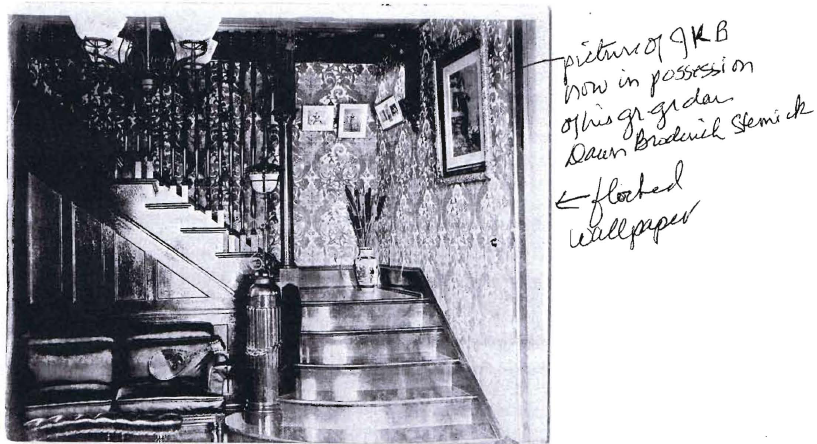 picture of JKB
now in possession
of his gr grdau
Dawn Broderick Sternick
← flocked
wallpaper